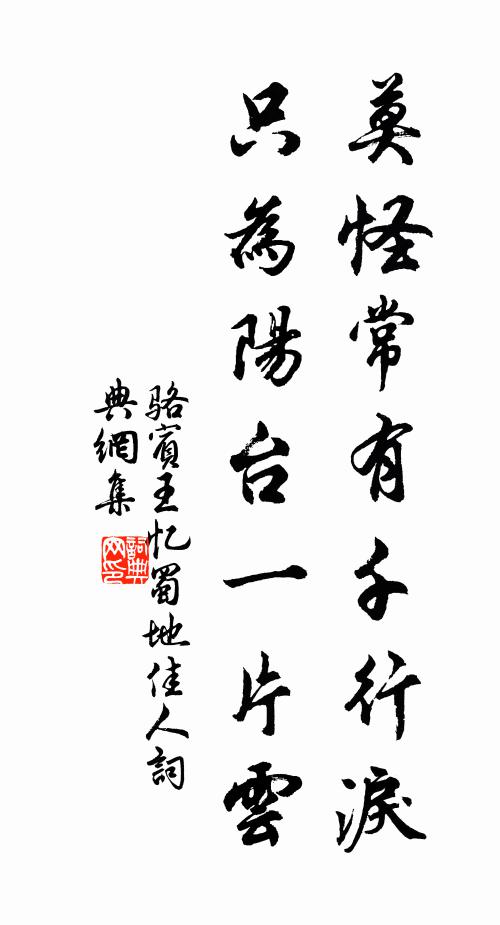 莫怪常有千行淚
只為陽台一片雲
駱賓王忆蜀地佳人詞
典網集
詞典
网印